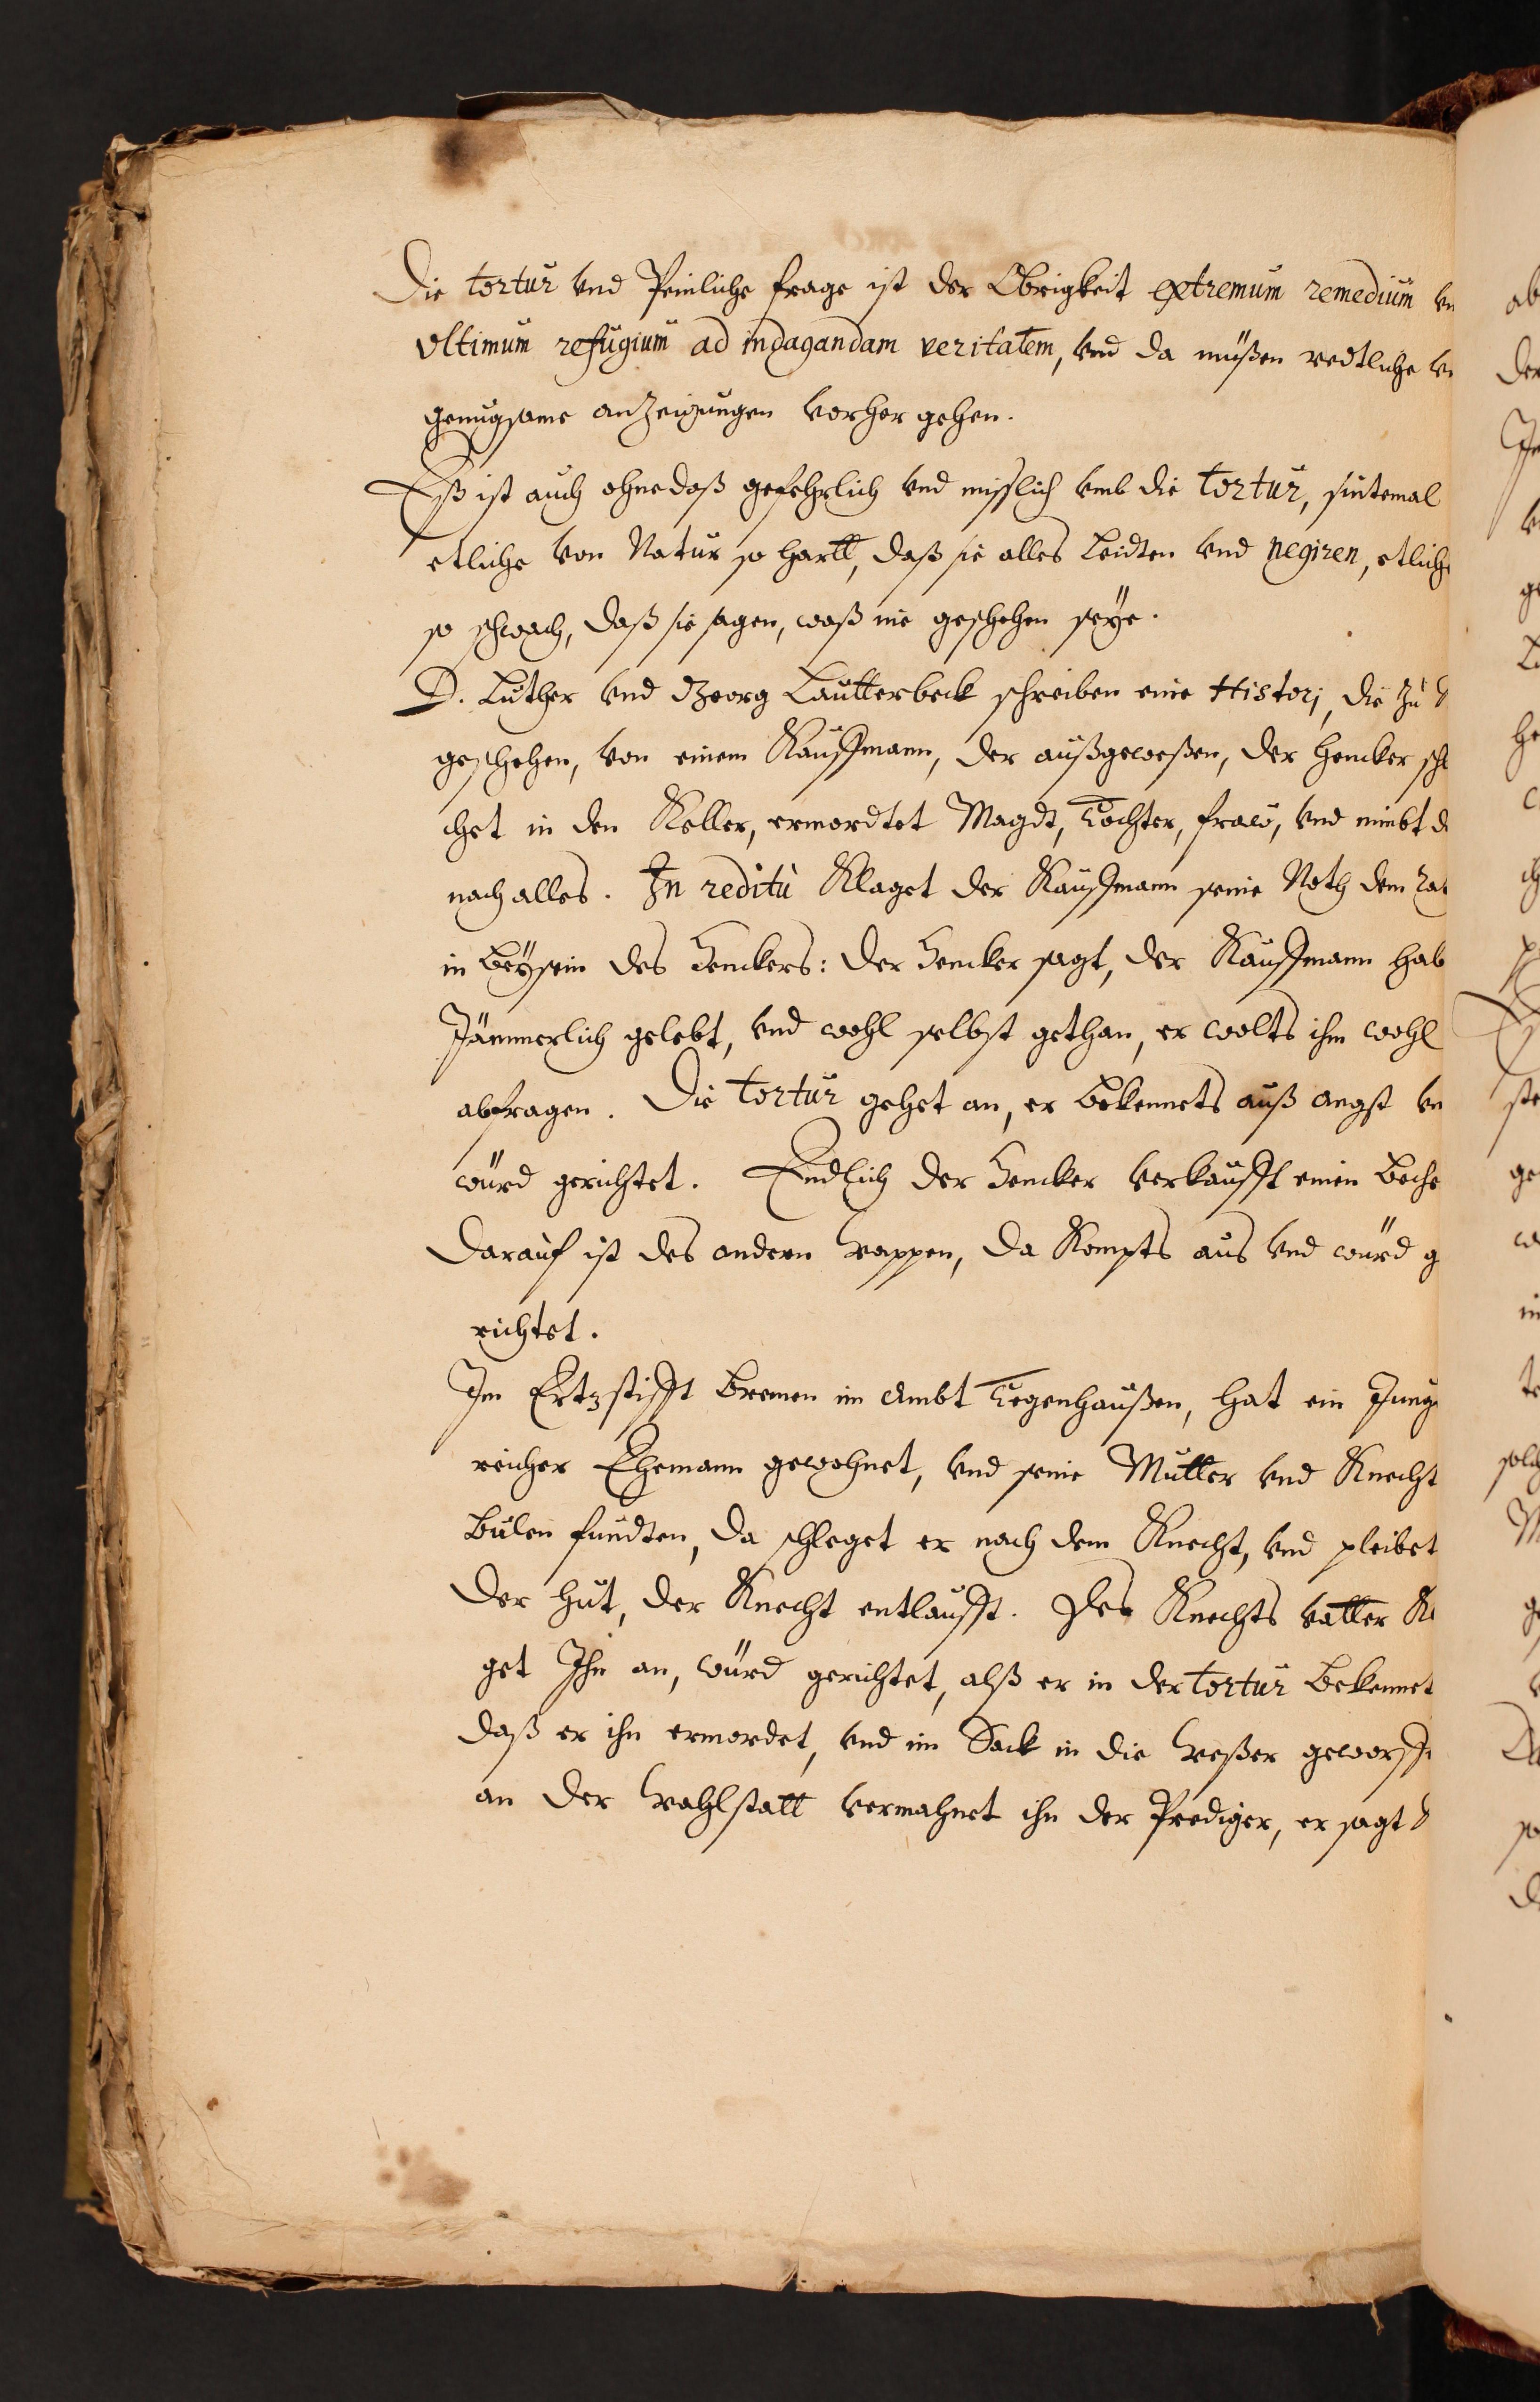 Die tortur vnd Peinliche frage ist der Obrigkeit extremum remedium vn
vltimum refugium ad indagandam veritatem, vnd da müßen redtliche v
genugsame anzeigungen vorher gehen.
Eß ist auch ohne daß gefehrlich vnd misslich vmb die tortur, sintemal
etliche von Natur so hartt, daß sie alles Leidten vnd negiren, etliche
so schwach, daß sie sagen, waß nie geschehen seye.
D. Luther vnd Georg Lautterbeck schreiben eine Histori, die zu
geschehen, von einem Kauffmann, der außgeweßen, der hencker schl
chet in den Keller, ermordtet Magdt, Tochter, fraw, vnd nimbt d
nach alles. In reditu Klaget der Kauffmann seine Noth dem rat
in beysein des Henckers: der Hencker sagt, der Kauffmann hab
Jämmerlich gelebt, vnd wohl selbst gethan, er wolts ihm wohl
abfragen. Die tortur gehet an, er bekennets auß angst vn
würd gerichtet. Endlich der Hencker verkaufft einen beche
darauf ist des andern wappen, da Kompts aus vnd würd g
richtet.
Im Ertzstifft bremen im Ambt Tegenhaußen, hat ein Junge
reicher Ehemann gewohnet, vnd seine Mutter vnd Knecht
bulen fundten, da schleget er nach dem Knecht, vnd pleibet
der hut, der Knecht entlaufft. Des Knechts vatter Kl
get Ihn an, würd gerichtet, alß er in der tortur bekennet
daß er ihn ermordet, vnd im Sack in die weßer geworffe
an der wahlstatt vermahnet ihn der Prediger, er sagt